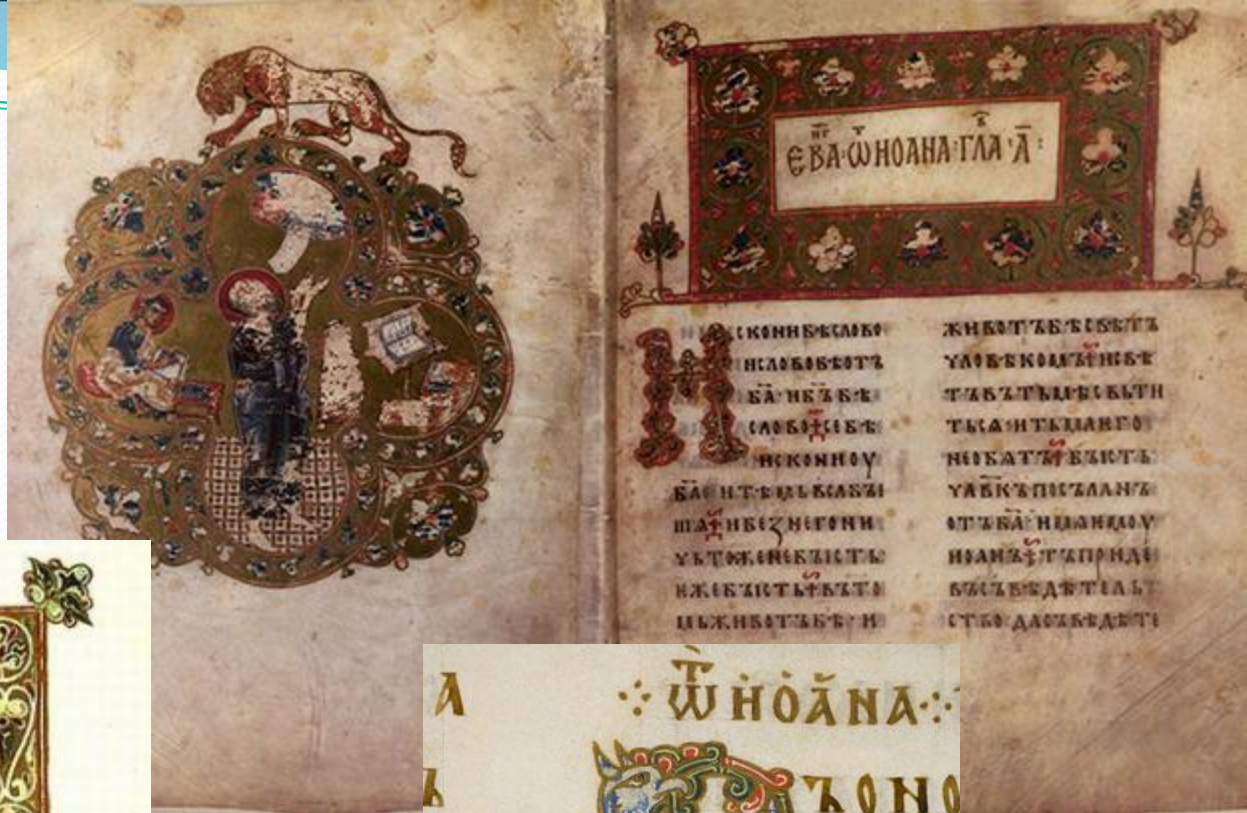 ЕВА·ѾИОАНА·ГЛА·А҃:
ИСКОНИБѢСЛОВО
ИСЛОВОБѢОТЪ
БА҃·ИБЪ҃БѢ
СЛОВО·СЕБѢ
ИСКОНИОУ
БА҃·ИТѢМЬВСѦБЪІ
ША·ИБЕЗНЕГОНИ
ЧЬТОЖЕНЕБЪІСТЬ·
ЕЖЕБЪІСТЬ·ВЪТО
МЬЖИВОТЪБѢ·И
ЖИВОТЪБѢСВѢТЪ
ЧЛОВѢКОМЪ·ИСВѢ
ТЪВЪТЬМѢСВЬТИ
ТЬСѦ·ИТЬМАѤГО
НЕОБѦТЪ·БЪІСТЬ
ЧЛ҃ВКЪПОСЪЛАНЪ
ОТЪБА҃·ИМѦѤМОУ
ИОАНЪ·ТЪПРИДЕ
ВЪСЪВѢДѢТЕЛЬ
СТВО·ДАСЪВѢДѢТЕ
А
Ъ
ѾИОАНА
ЪОНО